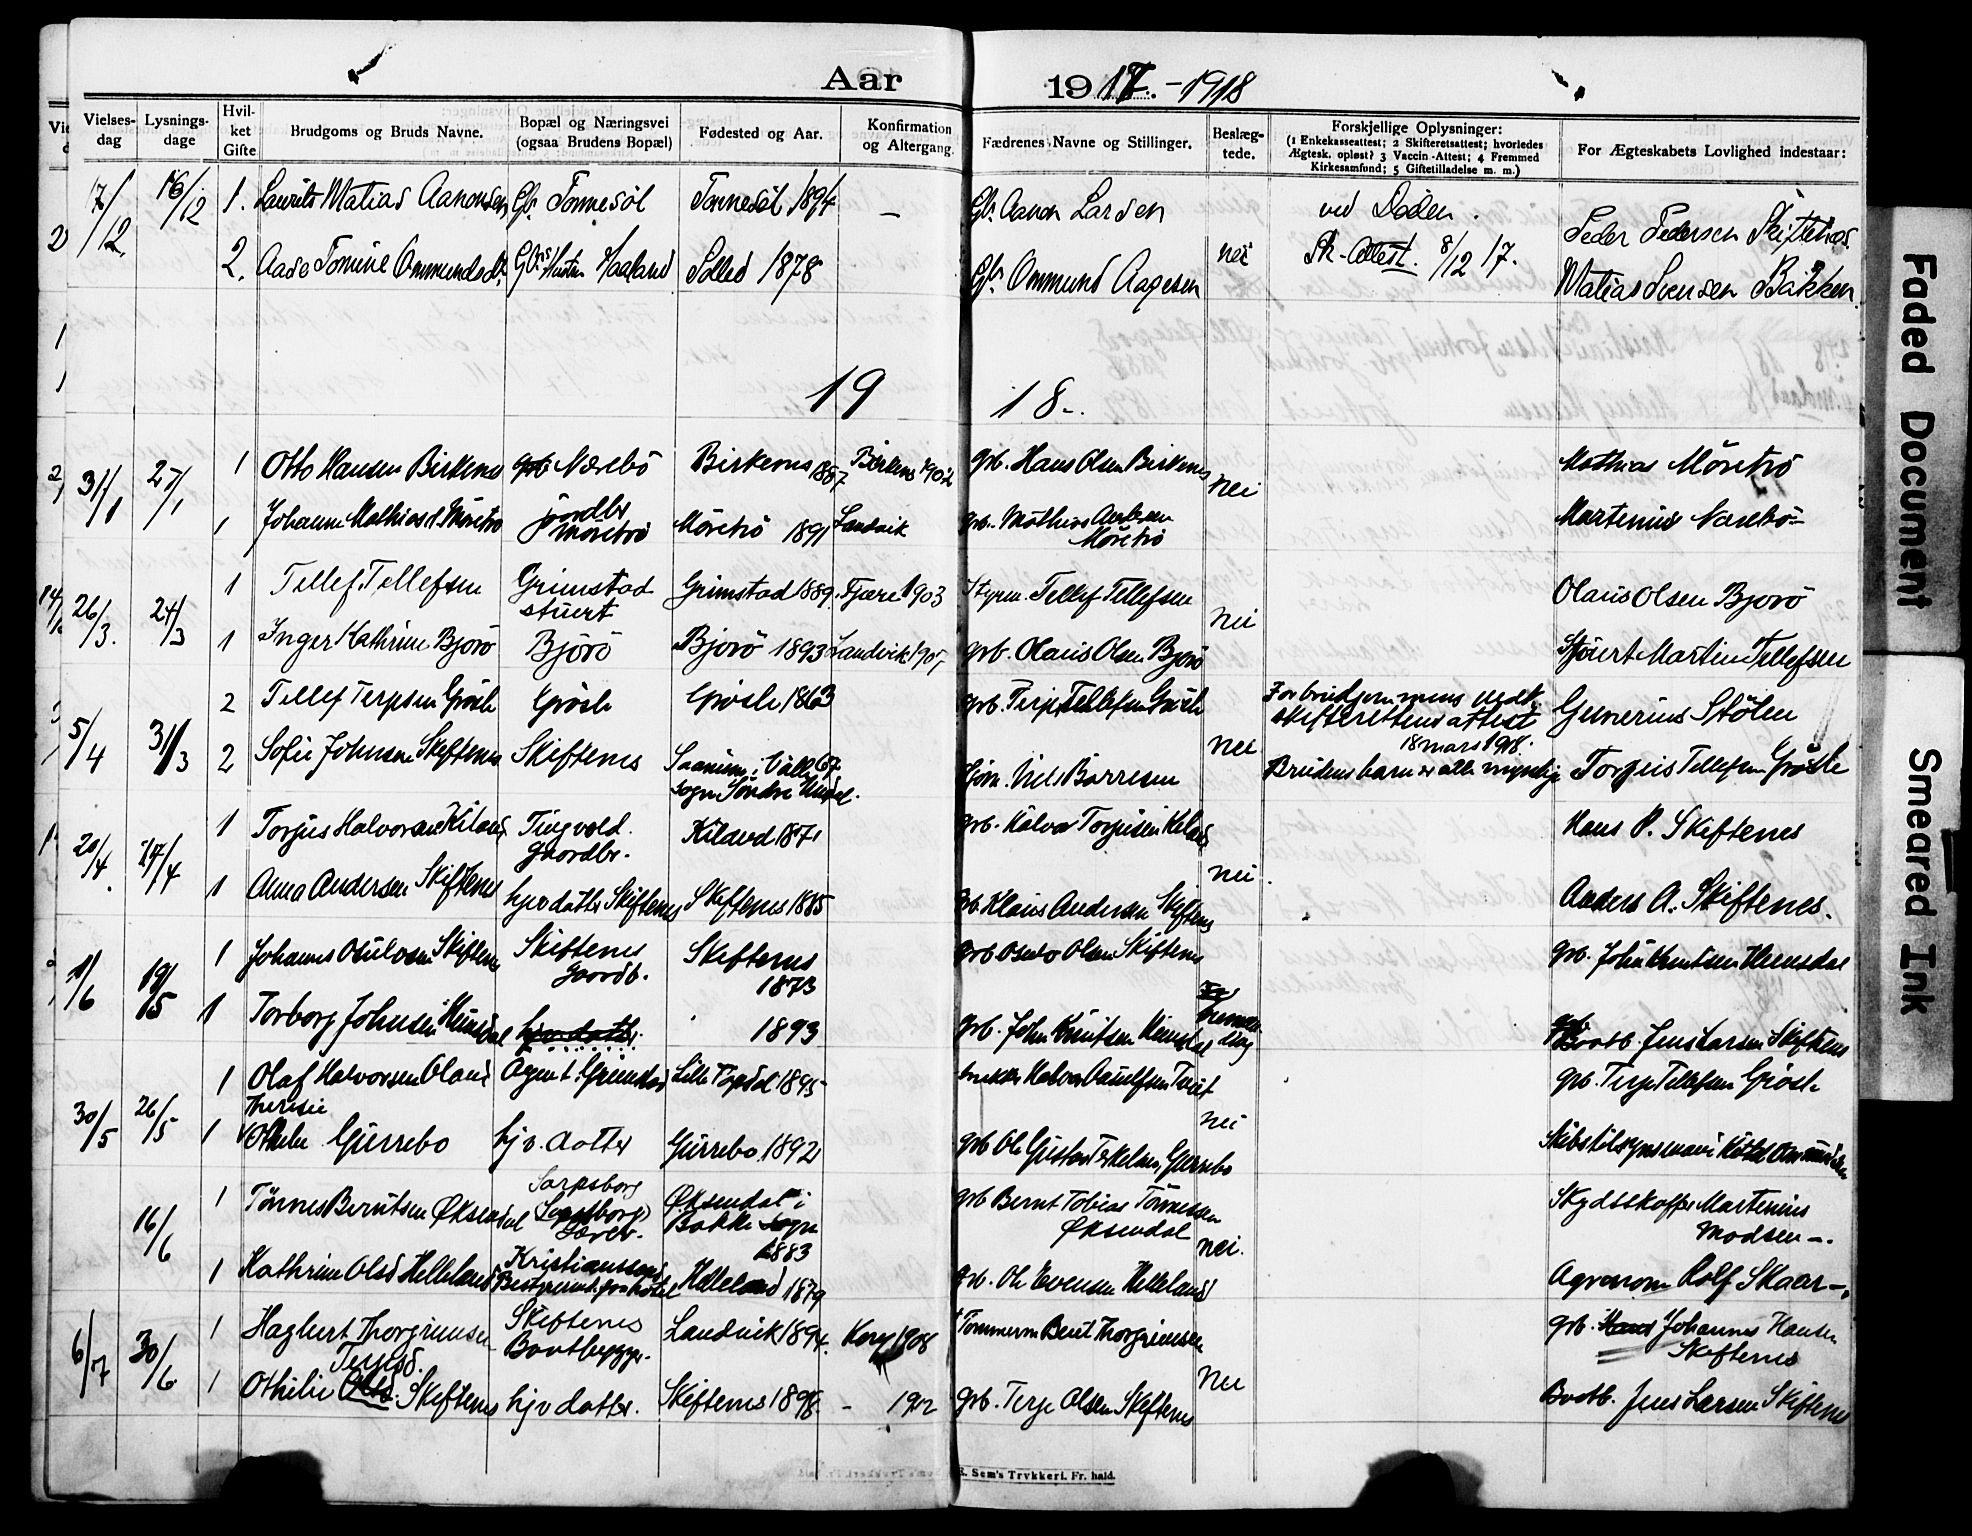 Aar 1917.-1918
Vielses-dag
Lysnings-dage
Hvil-ket Gifte
Brudgoms og Bruds Navne.
Bopæl og Næringsvei (ogsaa Brudens Bopæl)
Fødested og Aar.
Konfirmation og Altergang.
Fædrenes Navne og Stillinger.
Beslæg-tede.
Forskjellige Oplysninger:
(1 Enkekasseattest; 2 Skifteretsattest; hvorledes Ægtesk. opløst? 3 Vaccin-Attest; 4 Fremmed Kirkesamfund; 5 Giftetilladelse m. m.)
For Ægteskabets Lovlighed indestaar:
7/12 16/12 1. Laurits Matias Aanonsen Gbr. Tønnesøl Tønnesøl 1894 — Gbr. Aanon Larsen ved Døden. Peder Pedersen Skiftenæs
2. Aase Tomine Ommundsdt. Haaland 1878 Gbr. Ommund Aagesen nei Sk-Attest. 8/12 17. Matias Svensen Bakken
19 18.
31/1 1 Otto Hansen Birkenes Nærebö Birkenes 1887 Birkenes 1902 grb. Hans Olsen Birkenes nei Mathias Möretrö
1 Johanne Mathiasd. Möretrö Möretrö Möretrö 1891 Landvik grb. Mathias Möretrö Martenius Narebö
26/3. 24/3 1 Tellef Tellefsen Grimstad stuert Grimstad 1889. Fjære 1903 Styrm. Tellef Tellefsen nei Olaus Olsen Bjorö
1 Inger Kathrine Bjorö Björö Bjorö 1893 Landvik grb. Olaus Olsen Bjorö Martin Tellefsen
5/4 31/3 2 Tellef Terjesen Grösle Grösle Grösle 1863 grb. Terje Tellefsen Grösle nei For brudgommens vedk. skifterettens attest 18 mars 1918. Gunerius Stölen
2 Sofie Johnsen Skeftenes Skiftenes Nils Börresen Brudens barn er alle myndig Torjus Tellefsen Grösle
20/4 17/4 1 Torjus Halvorsen Kiland Tingvold. gaardbr. Kiland 1871 grb. Halvor Torjusen Kiland nei Hans P. Skeftenes
1 Anna Andersen Skeftenes hjv datter Skiftenes Skeftenes 1885 grb. Klaus Andersen Skeftenes Anders A. Skiftenes.
1/6 19/5 1 Johannes Osulvsen Skeftenes Skiftenes Gaardb. Skeftenes 1873 grb Osulv Olsen Skiftenes grb. John Knutsen Hemsdal
1 Torborg Johnsen Hemsdal 1893 grb. John Knutsen Hemsdal Baatb. Jens Larsen Skeftenes
30/5 26/5 1 Olaf Halvorsen Oland Agent Grimstad Lille Topdal 1895 nei grb. Terje Tellefsen Grösle
1 Theresie Othelie Gurrebo hjv. datter Gurrebo 1892 grb Ole Gustav Terkelsen Gurrebo
16/6 1 Tönnes Berntsen Øksendal Sarpsborg Øksendal i Bakke sogn 1883 grb Bernt Tobias Tönnessen Øksendal nei. Skydsskaffer Martenius Madsen —.
1 Kathrine Olsd Helleland Kristianssand Helleland 1879 grb. Ole Evensen Helleland Agronom Rolf Skaar —.
6/7 30/6 1 Hagbert Thorgrimsen Skeftenes Baatbygger. Landvik 1894. 1908 Tömmerm Bent Thorgrimsen nei grb. Johannes Hansen Skeftenes
1 Othilie Terjesd. Skeftenes hjv datter. Skeftenes 1898. — 1912 grb. Terje Olsen Skeftenes Baatb. Jens Larsen Skeftenes
E. Sem's Trykkeri. Fr. hald.
Faded Document
Smeared Ink